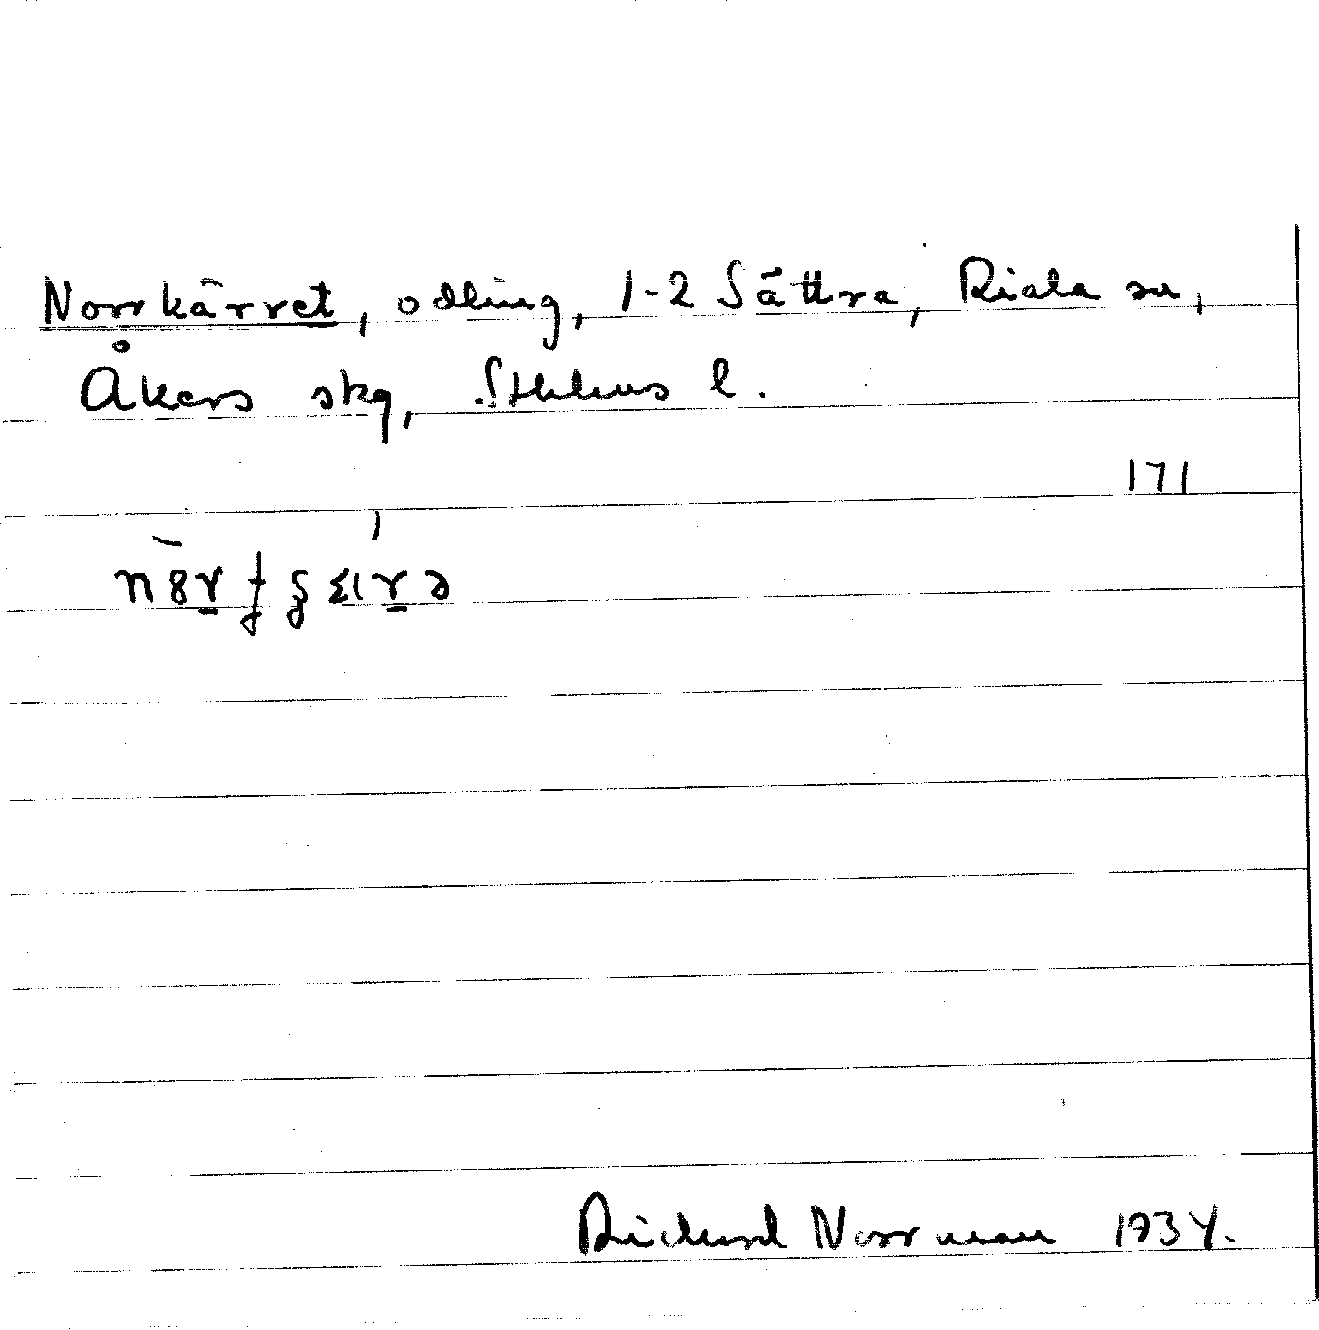 Norrkärret, odling, 1-2 Sättra, Riala sn,
Åkers skg, Sthlms l.
171
Rickard Norrman 1934.